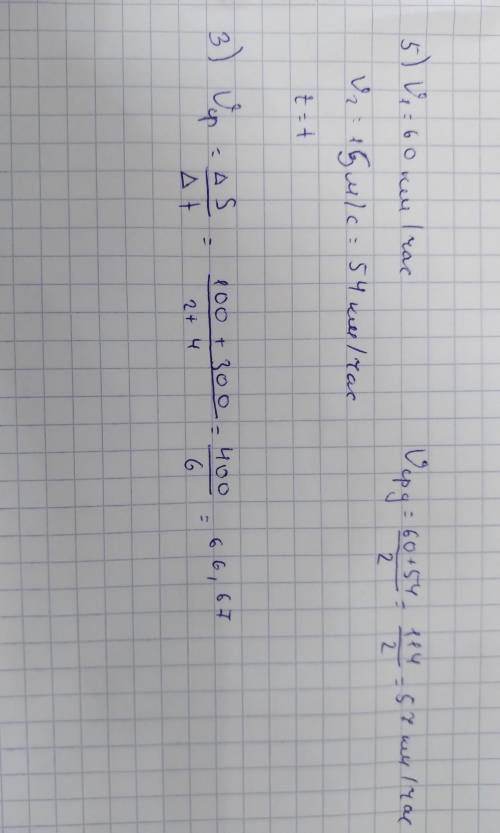 5) V₁ = 60 км/час
V₂ = 15 м/с = 54 км/час
t = t
Vсрд = (60+54)/2 = 114/2 = 57 км/час
3) Vср = ΔS/Δt = (100 + 300)/(2 + 4) = 400/6 = 66,67